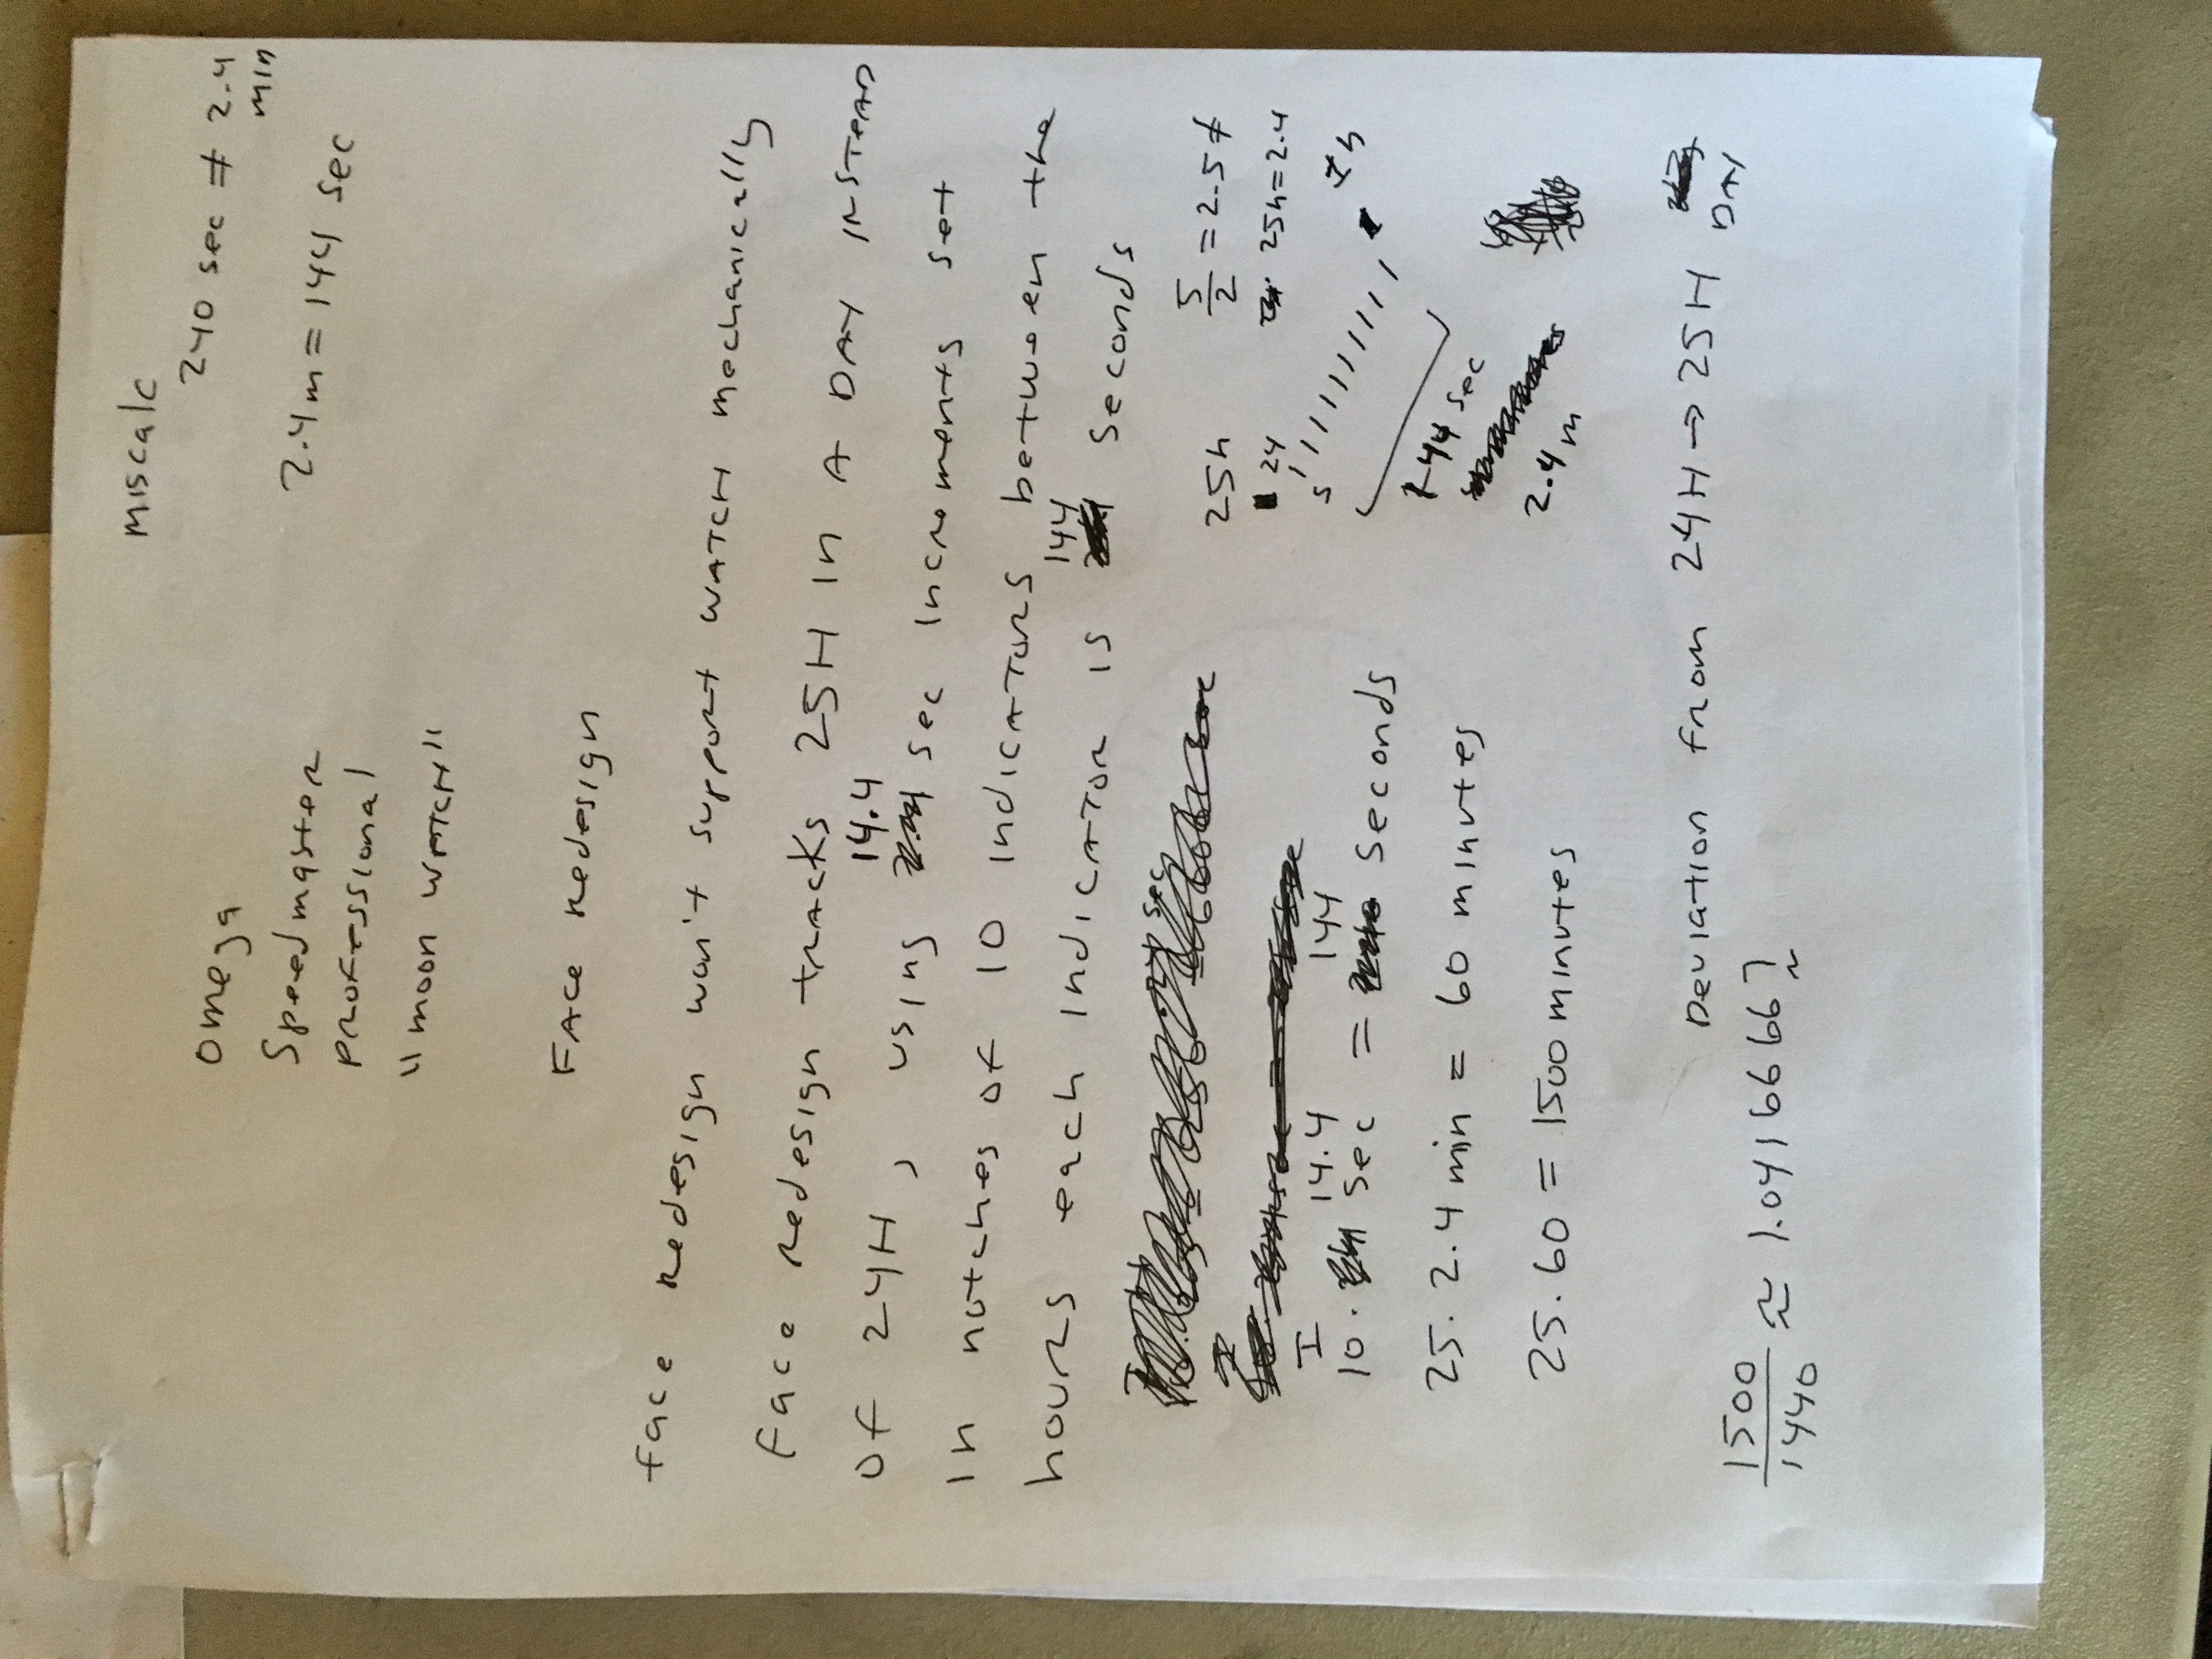 miscalc
240 sec ≠ 2.4
min
2.4m = 144 sec
omega
Speedmaster
professional
"moon WATCH"
FACe Redesign
face Redesign won't support WATCH mechanically
Face Redesign tracks 25H in A DAY INSTEAD
14.4
of 24H, using sec increments set
in notches of 10 indicATORS between the
144
hours each indicATOR is seconds
sec
I 14.4 144
10 . sec = seconds
25 . 2.4 min = 60 minutes
25 . 60 = 1500 minutes
25h 5/2 = 2.5 ≠
24 25h = 2.4
5 1h
144 sec
2.4 m
Deviation from 24H → 25H
DAY
1500/1440 ≈ 1.041666667